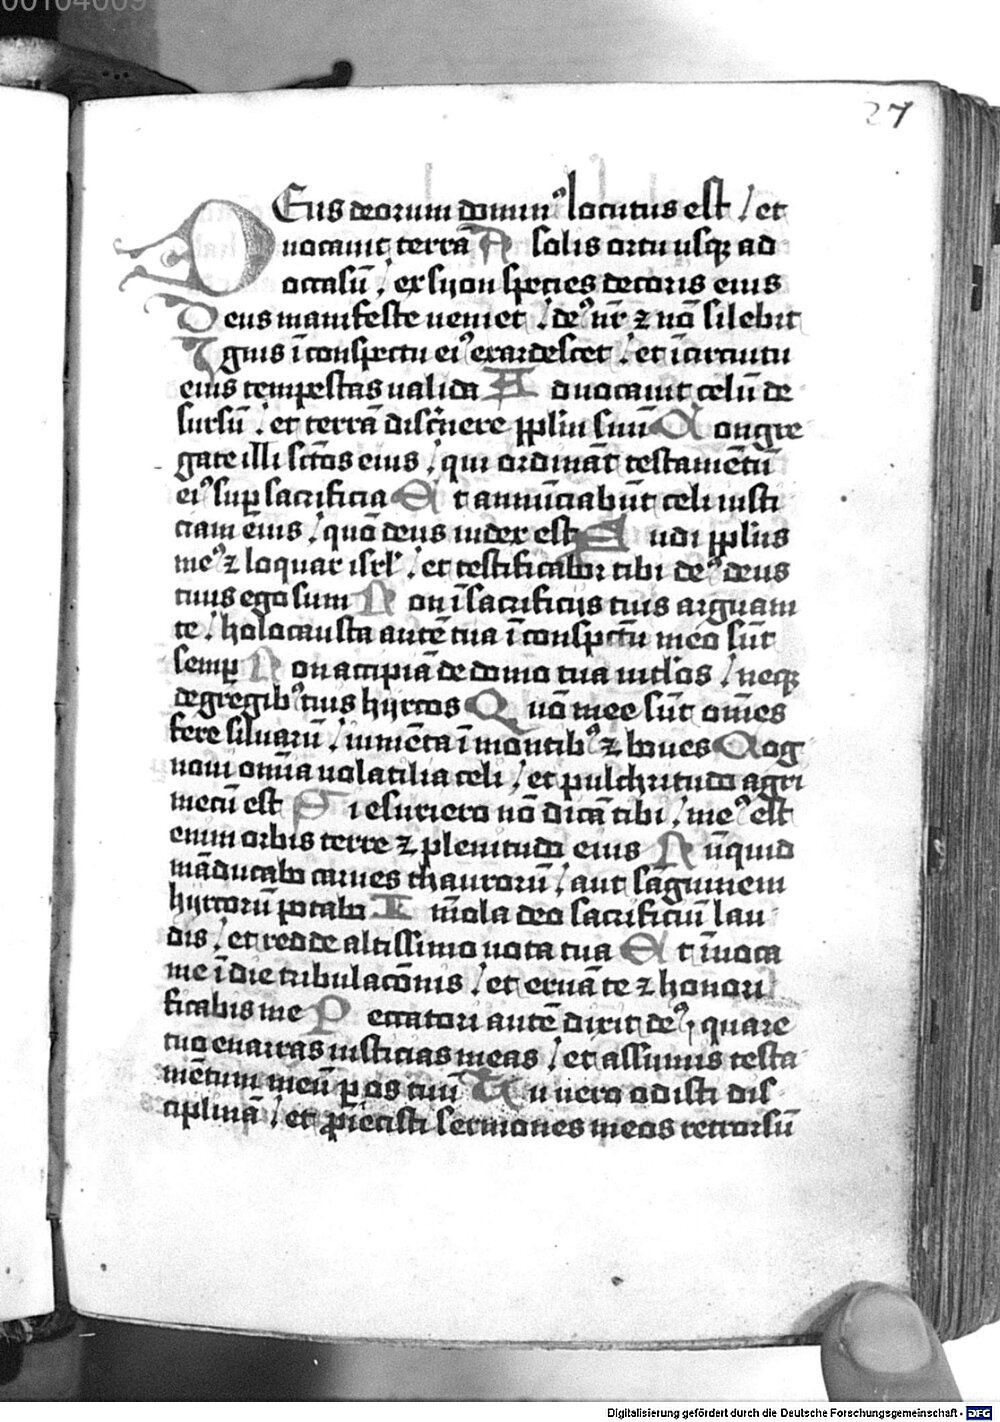 00104009
27
Deus deorum domin⁹ locutus est / et
uocauit terrā A solis ortu usq₃ ad
occasū / ex syon species decoris eius
Deus manifeste ueniet / de⁹ nr̄ ⁊ nō silebit
Ignis ī conspectu ei⁹ exardescet / et ī circuitu
eius tempestas ualida Aduocauit celū de
sursū / et terrā discn̄ere pplm suū Congre
gate illi sc̄tos eius / qui ordināt testamētū
ei⁹ suꝑ sacrificia Et annūciabūt celi iusti
ciam eius / quō deus iudex est Audi pplus
me⁹ ⁊ loquar isrl / et testificabor tibi de⁹ deus
tuus ego sum Non ī sacrificijs tuis arguam
te / holocausta autē tua ī conspectu meo sūt
semꝑ Non accipiā de domo tua uitlos / neq₃
de gregib⁹ tuis hyrcos Quō mee sūt om̄es
fere siluarū / iumēta ī montib⁹ ⁊ boues Cog
noui omīa uolatilia celi / et pulchritudo agri
mecū est Si esuriero nō dicā tibi / me⁹ est
enim orbis terre ⁊ plenitudo eius Nūquid
māducabo carnes thaurorū / aut sāguinem
hyrcorū potabo Im̄ola deo sacrificiū lau
dis / et redde altissimo uota tua Et īuoca
me ī die tribulacōnis / et eruā te ⁊ honori
ficabis me Peccatori autē dixit de⁹ / quare
tu enarras iusticias meas / et assumis testa
mētum meū ꝑ os tuū Tu uero odisti dis
ciplinā / et ꝓiecisti sermones meos retrorsū
Digitalisierung gefördert durch die Deutsche Forschungsgemeinschaft - DFG